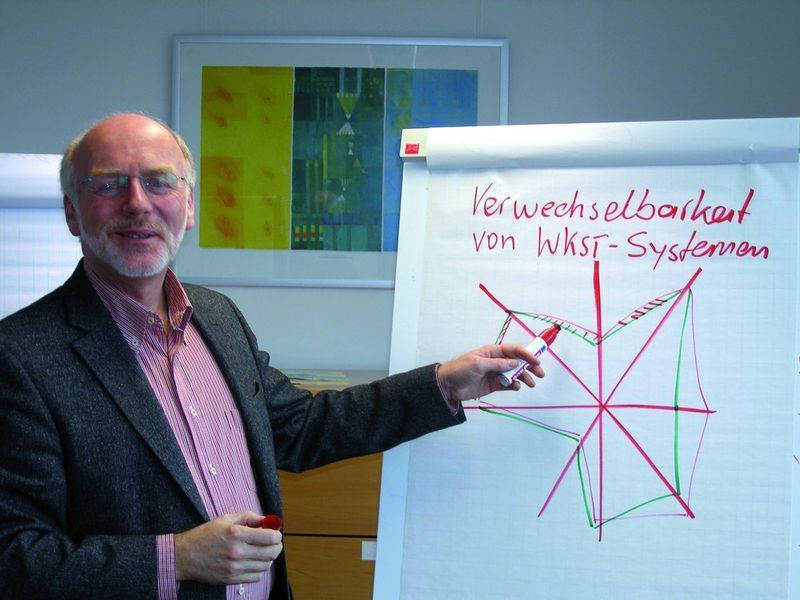 Verwechselbarkeit
von WKST-Systemen